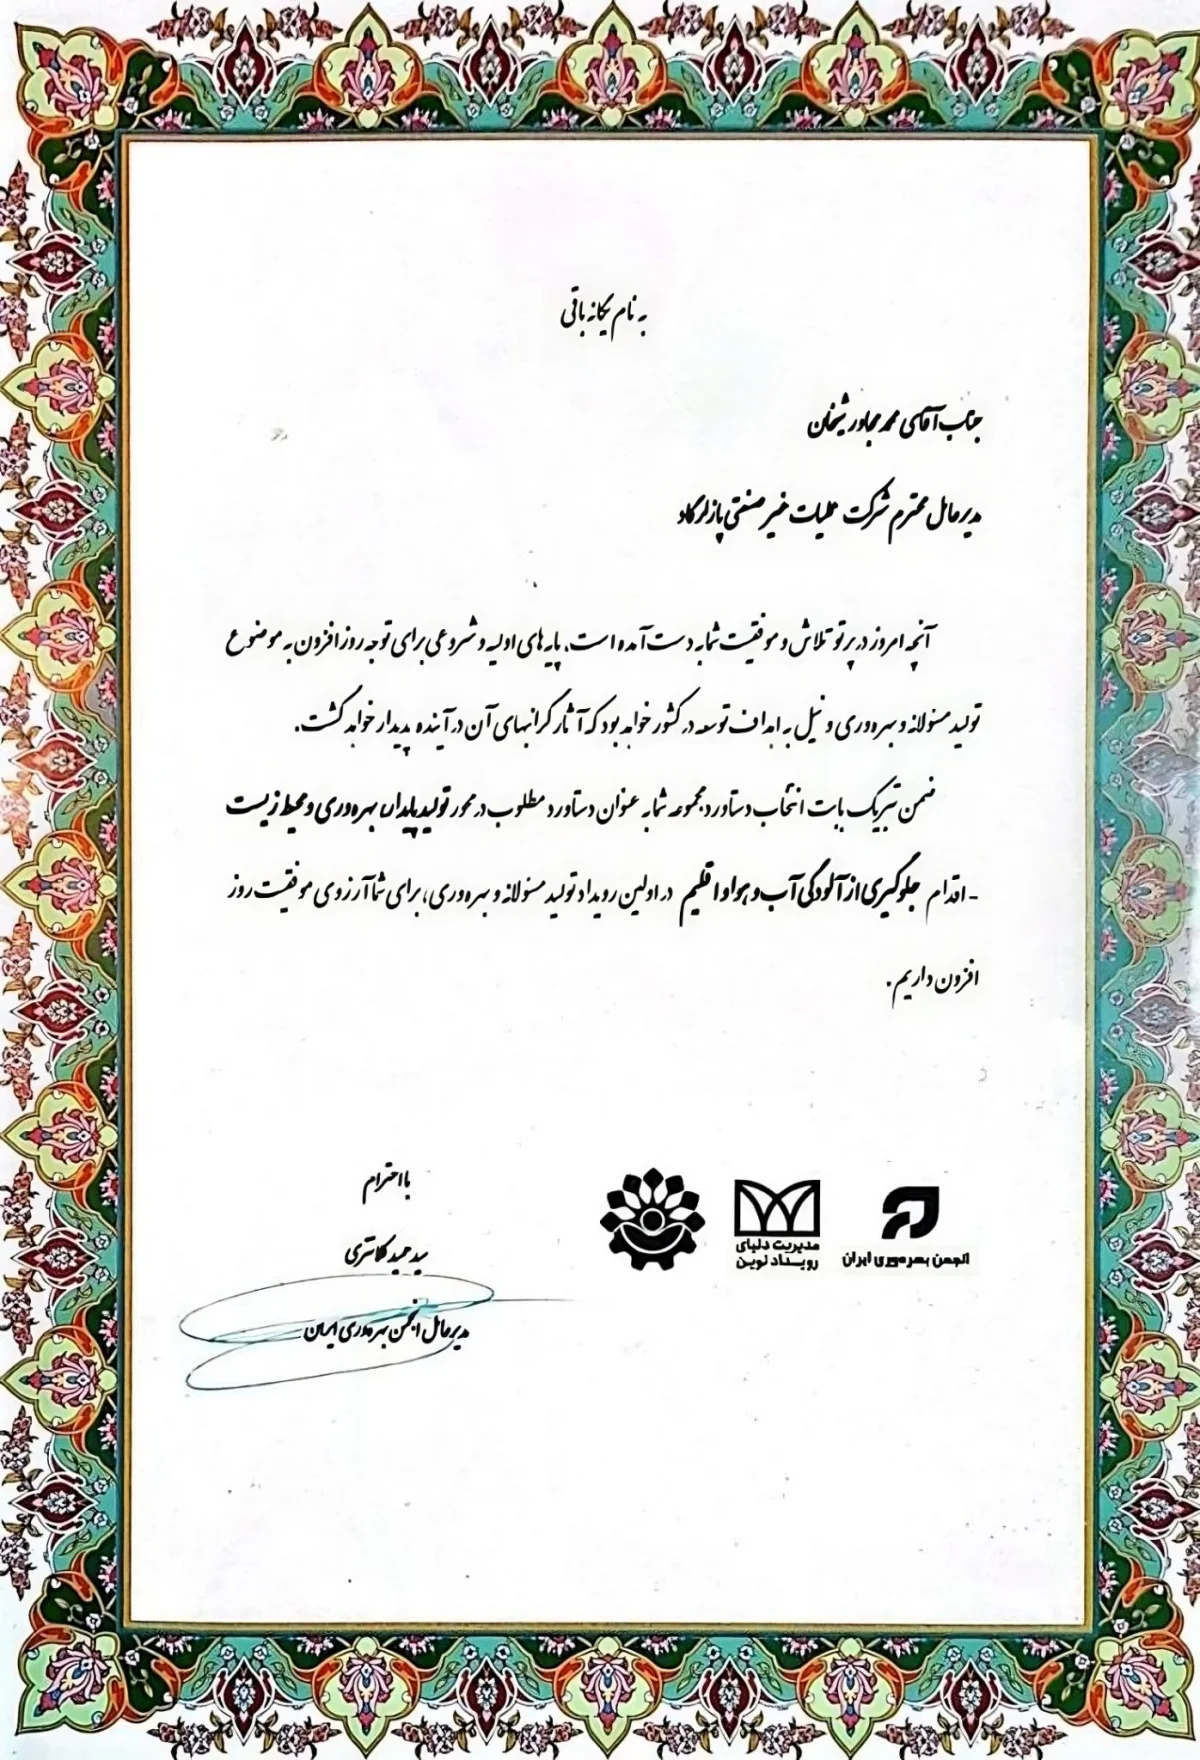 به نام یگانه باقی
جناب آقای محمد مجاور شیخان
مدیرعامل محترم شرکت عملیات غیر صنعتی پازارگاد
آنچه امروز در پرتو تلاش و موفقیت شما به دست آمده است، پایه های اولیه و شروعی برای توجه روز افزون به موضوع
تولید مسئولانه و بهره وری و نیل به اهداف توسعه در کشور خواهد بود که آثار گرانبهای آن در آینده پدیدار خواهد گشت.
ضمن تبریک بابت انتخاب دستاورد مجموعه شما به عنوان دستاورد مطلوب در محور تولید پایدار، بهره وری و محیط زیست
- اقدام جلوگیری از آلودگی آب و هوا و اقلیم در اولین رویداد تولید مسئولانه و بهره وری، برای شما آرزوی موفقیت روز
افزون داریم.
انجمن بهره وری ایران
مدیریت دنیای
رویداد نوین
با احترام
سید حمید کلانتری
مدیرعامل انجمن بهره وری ایران